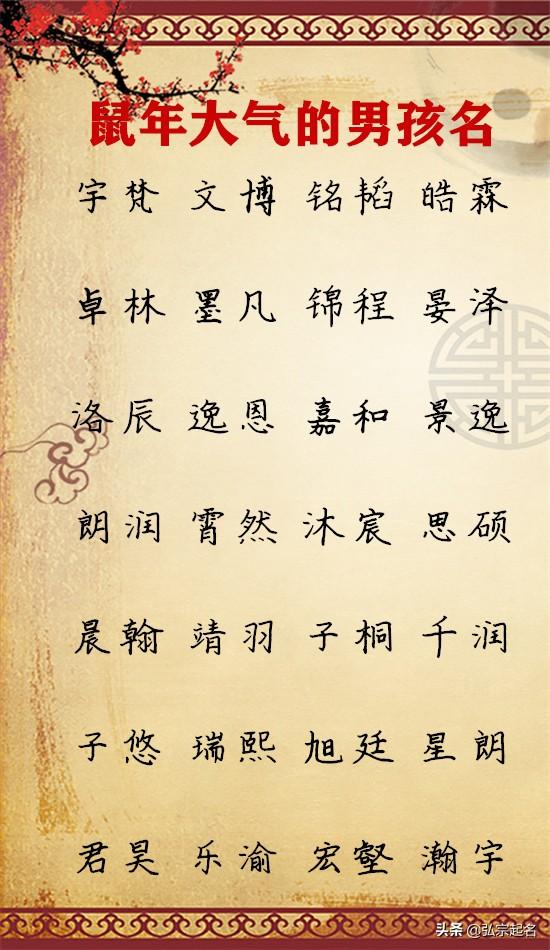 鼠年大气的男孩名
宇梵 文博 铭韬 皓霖
卓林 墨凡 锦程 晏泽
洛辰 逸恩 嘉和 景逸
朗润 霄然 沐宸 思硕
晨翰 靖羽 子桐 千润
子悠 瑞熙 旭廷 星朗
君昊 乐渝 宏壑 瀚宇
头条 @弘宗起名